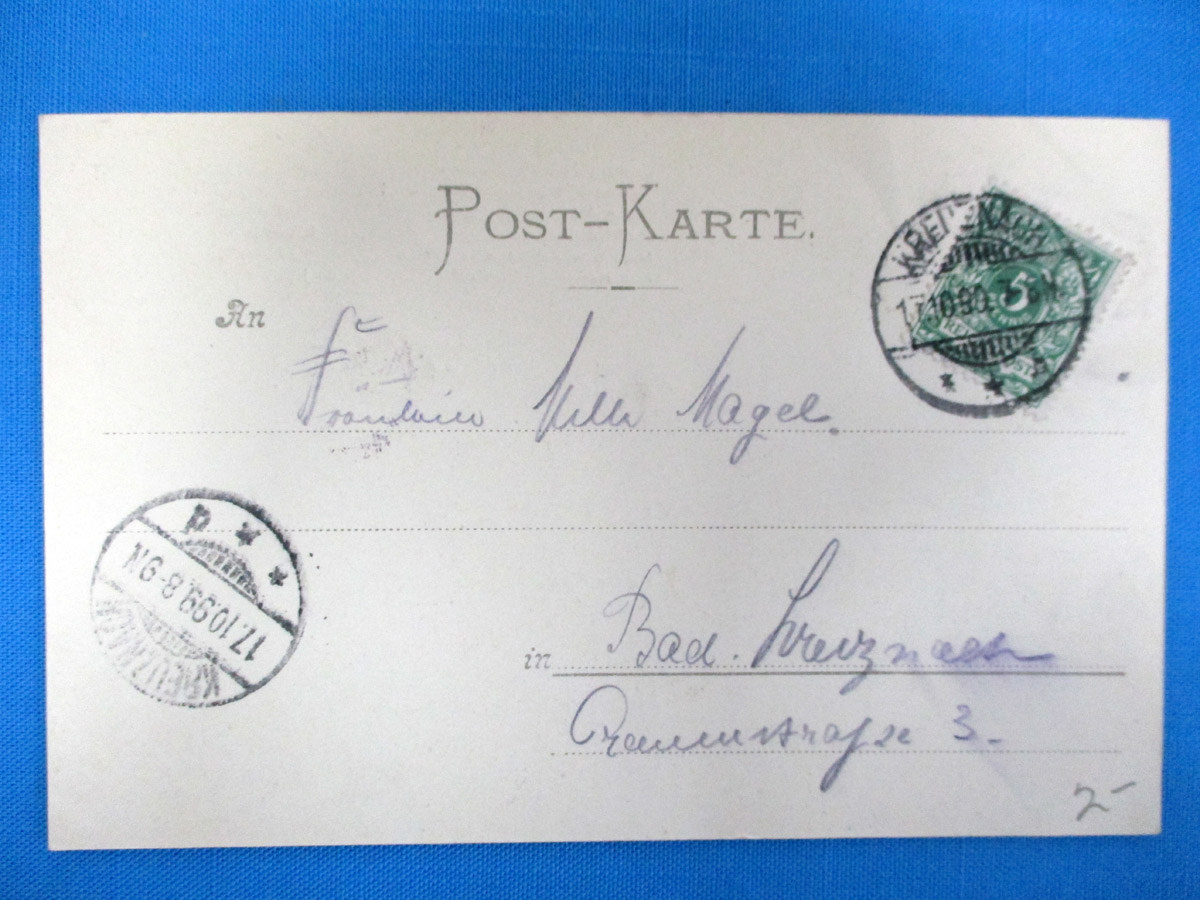 POST-KARTE.
KREUZNACH
17.10.99. 7-8 N
a
5
An
Fräulein Magel.
p
17.10.99. 8-9N
KREUZNACH
in Bad. Kreuznach
3.
2-